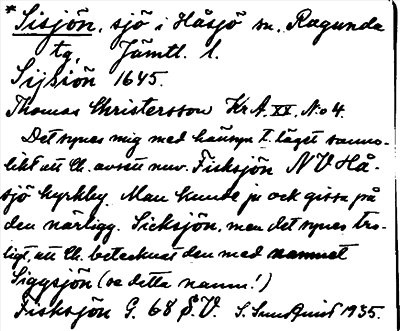 * Sisjön, sjö i Håsjö sn, Ragunda
tg, Jämtl. l.
Sijsiön 1645.
Thomas Christersson KrA. XX. No 4.
Det synes mig med hänsyn t. läget sanno-
likt att Ch. avsett nuv. Ficksjön NV Hå-
sjö kyrkby. Man kunde ju ock gissa på
den närligg. Sicksjön, men det synes tro-
ligt, att Ch. betecknat den med namnet
Siggsjön (se detta namn!)
Fisksjön G. 68 SV. S. Sundquist 1935.